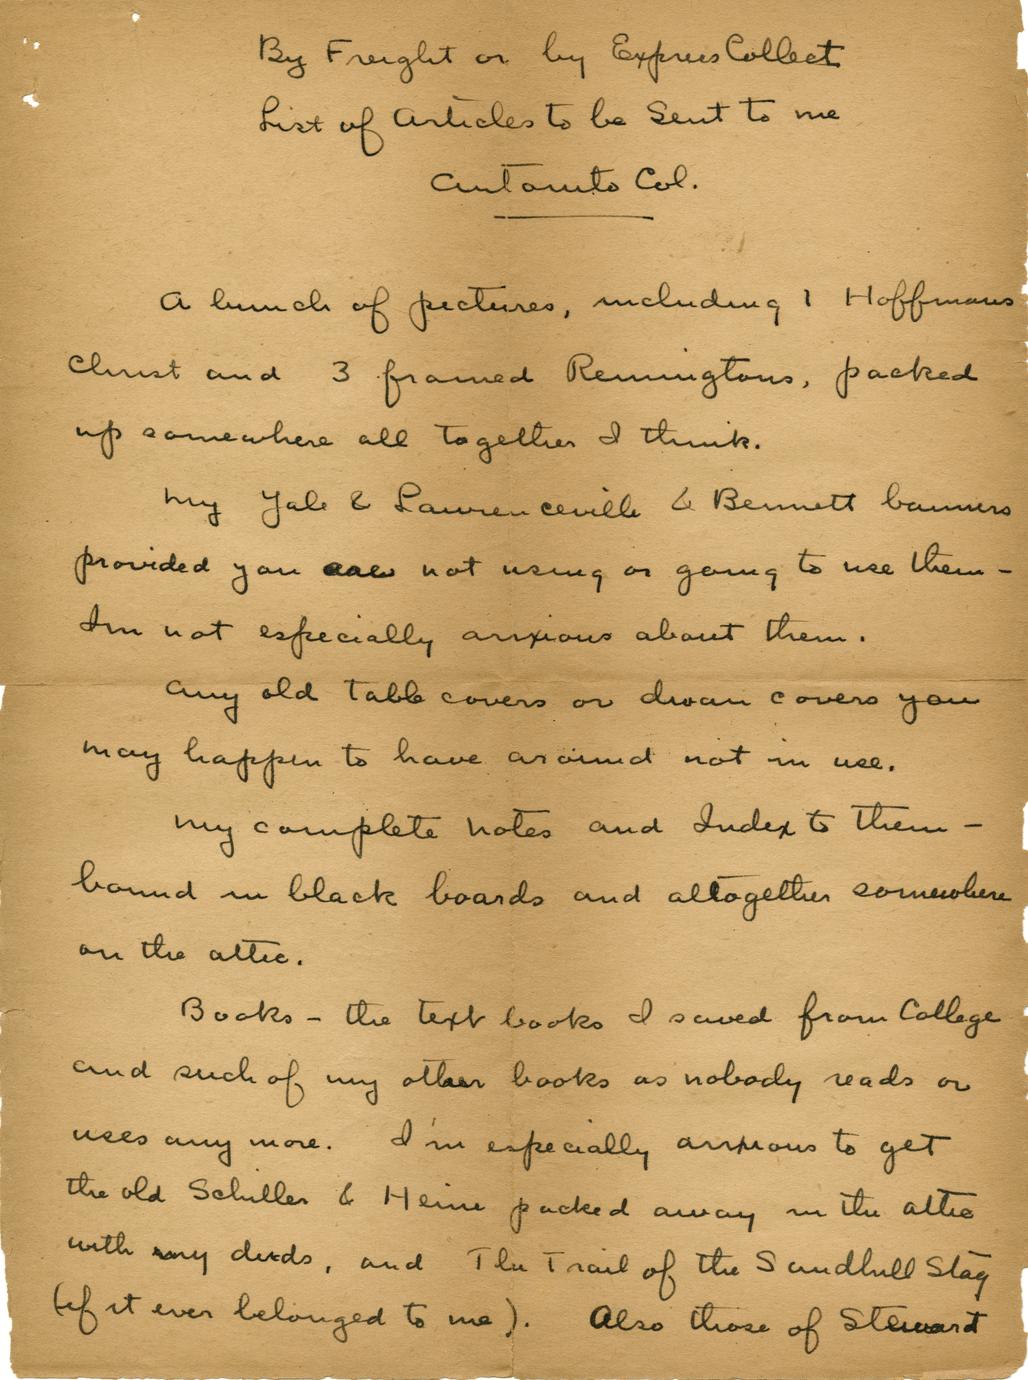 By Freight or by Express Collect
List of Articles to be Sent to me
Antonito Col.
A bunch of pictures, including 1 Hoffmans
Christ and 3 framed Remingtons, packed
up somewhere all together I think.
My Yale & Lawrenceville & Bennett banners
provided you are not using or going to use them -
I'm not especially anxious about them.
Any old table covers or divan covers you
may happen to have around not in use.
My complete notes and Index to them -
bound in black boards and altogether somewhere
on the attic.
Books - the text books I saved from College
and such of my other books as nobody reads or
uses any more. I'm especially anxious to get
the old Schiller & Heine packed away in the attic
with my duds, and The Trail of the Sandhill Stag
(if it ever belonged to me). Also those of Steward